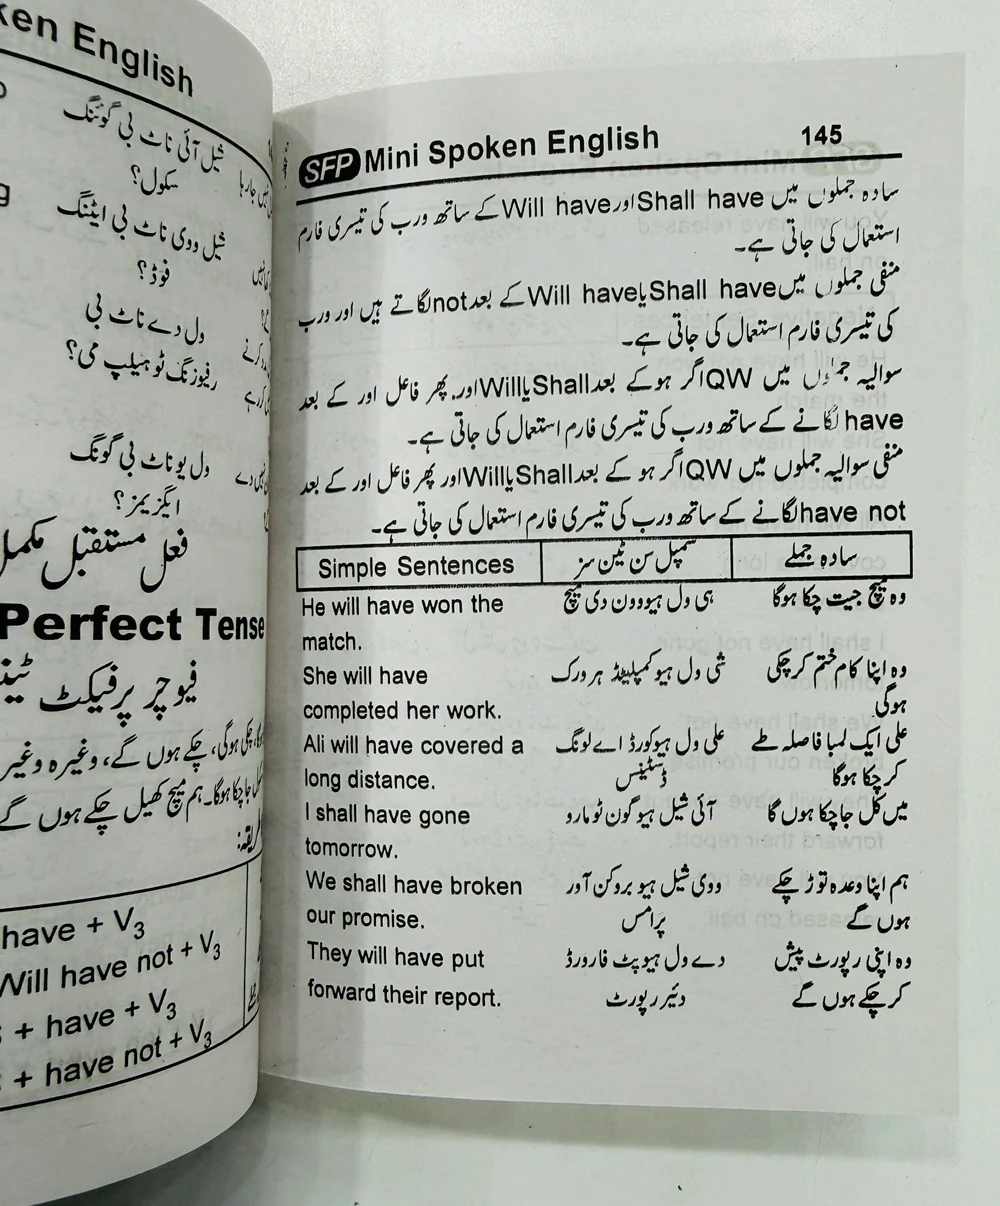 ken English
شیل آئی ناٹ بی گوئنگ
سکول؟
شیل ووی ناٹ بی ایٹنگ
فوڈ؟
ول دے ناٹ بی
رفیوزنگ ٹو ہیلپ می؟
ول یو ناٹ بی گونگ
ایگزیمز؟
فعل مستقبل مکمل
Perfect Tense
فیوچر پرفیکٹ
چکی ہوگی، چکے ہوں گے، وغیرہ وغیر
جا چکا ہوگا۔ ہم میچ کھیل چکے ہوں گے
have + V3
Will have not + V3
+ have + V3
+ have not + V3
SFP Mini Spoken English 145
سادہ جملوں میں Shall have اور Will have کے ساتھ ورب کی تیسری فارم
استعمال کی جاتی ہے۔
منفی جملوں میں Shall have یا Will have کے بعد not لگاتے ہیں اور ورب
کی تیسری فارم استعمال کی جاتی ہے۔
سوالیہ جملوں میں QW اگر ہو کے بعد Shall یا Will اور۔ پھر فاعل اور کے بعد
have لگانے کے ساتھ ورب کی تیسری فارم استعمال کی جاتی ہے۔
منفی سوالیہ جملوں میں QW اگر ہو کے بعد Shall یا Will اور پھر فاعل اور کے بعد
have not لگانے کے ساتھ ورب کی تیسری فارم استعمال کی جاتی ہے۔
Simple Sentences سمپل سن ٹین سز سادہ جملے
He will have won the ہی ول ہیووون دی میچ وہ میچ جیت چکا ہوگا
match.
She will have شی ول ہیو کمپلیٹڈ ہر ورک وہ اپنا کام ختم کر چکی
completed her work. ہوگی
Ali will have covered a علی ول ہیو کورڈ اے لونگ علی ایک لمبا فاصلہ طے
long distance. ڈسٹینس کر چکا ہوگا
I shall have gone آئی شیل ہیو گون ٹو مارو میں کل جا چکا ہوں گا
tomorrow.
We shall have broken ووی شیل ہیو بروکن آور ہم اپنا وعدہ توڑ چکے
our promise. پرامس ہوں گے
They will have put دے ول ہیو پٹ فارورڈ وہ اپنی رپورٹ پیش
forward their report. دئیر رپورٹ کر چکے ہوں گے